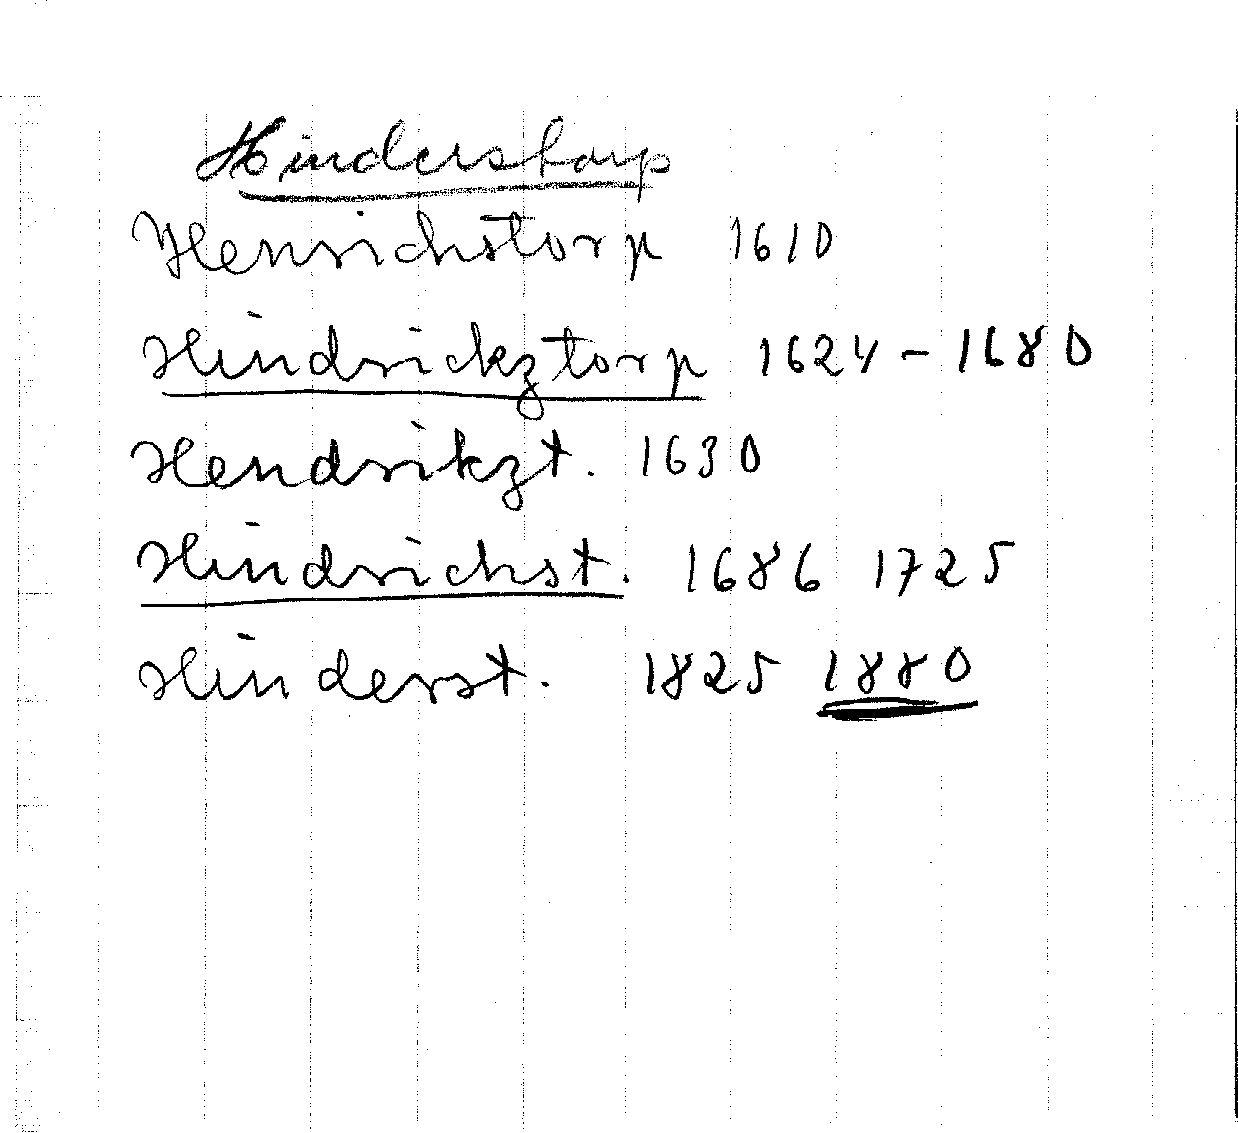 Hinderstorp
Henrichstorp 1610
Hindrickztorp 1624 - 1680
Hendrikzt. 1630
Hindrichst. 1686 1725
Hinderst. 1825 1880